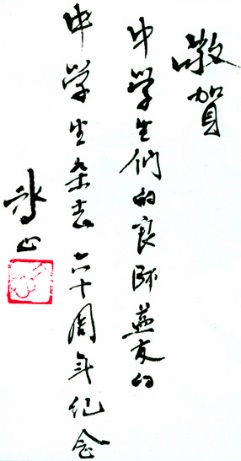 敬賀
中學生們的良師益友的
中學生杂志六十周年纪念